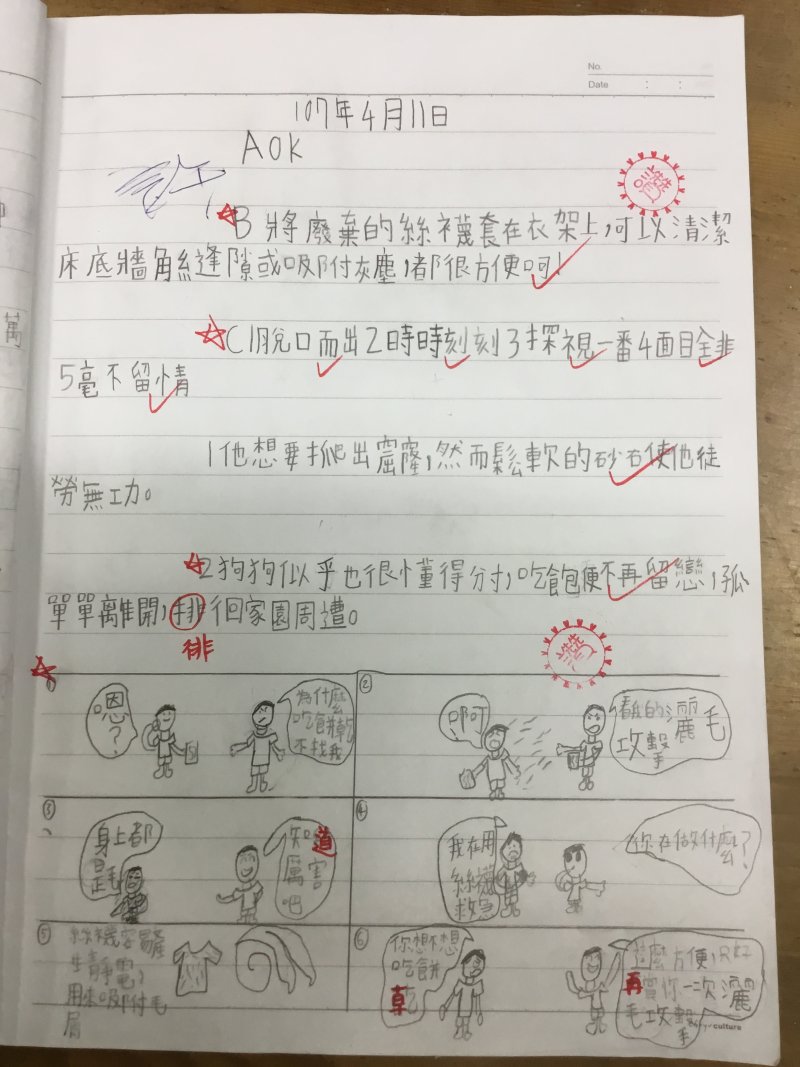 No.
Date : :
107年4月11日
AOK
B 將廢棄的絲襪套在衣架上,可以清潔
床底牆角縫隙或吸附灰塵,都很方便呵!
讚
C 1脫口而出2時時刻刻3探視一番4面目全非
5毫不留情
1他想要抓爬出窟窿,然而鬆軟的砂石使他徒
勞無功。
2狗狗似乎也很懂得分寸,吃飽便不再留戀,孤
單單離開,排徊家園周遭。
徘
讚
①
嗯?
為什麼
吃餅乾
不找我
②
啊呵
看我的灑毛
攻擊
③
身上都
是毛
知道
厲害
吧
④
我在用
絲襪
救急
你在做什麼?
⑤
絲襪容易產
生靜電,
用來吸附毛
屑
⑥
你想不想
吃餅
乾
這麼方便,只好
再賞你一次灑
毛攻擊
culture